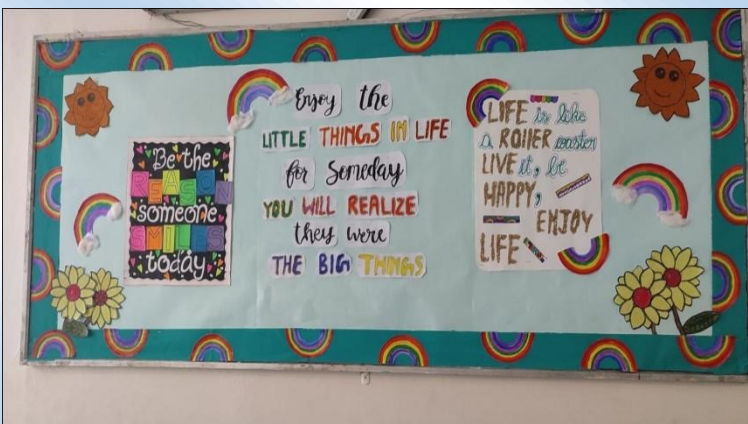 Be the
REASON
someone
SMILES
today
Enjoy the
LITTLE THINGS IN LIFE
for Someday
YOU WILL REALIZE
they were
THE BIG THINGS
LIFE is like
a ROllER coaster
LIVE it, be
HAPPY,
ENJOY
LIFE